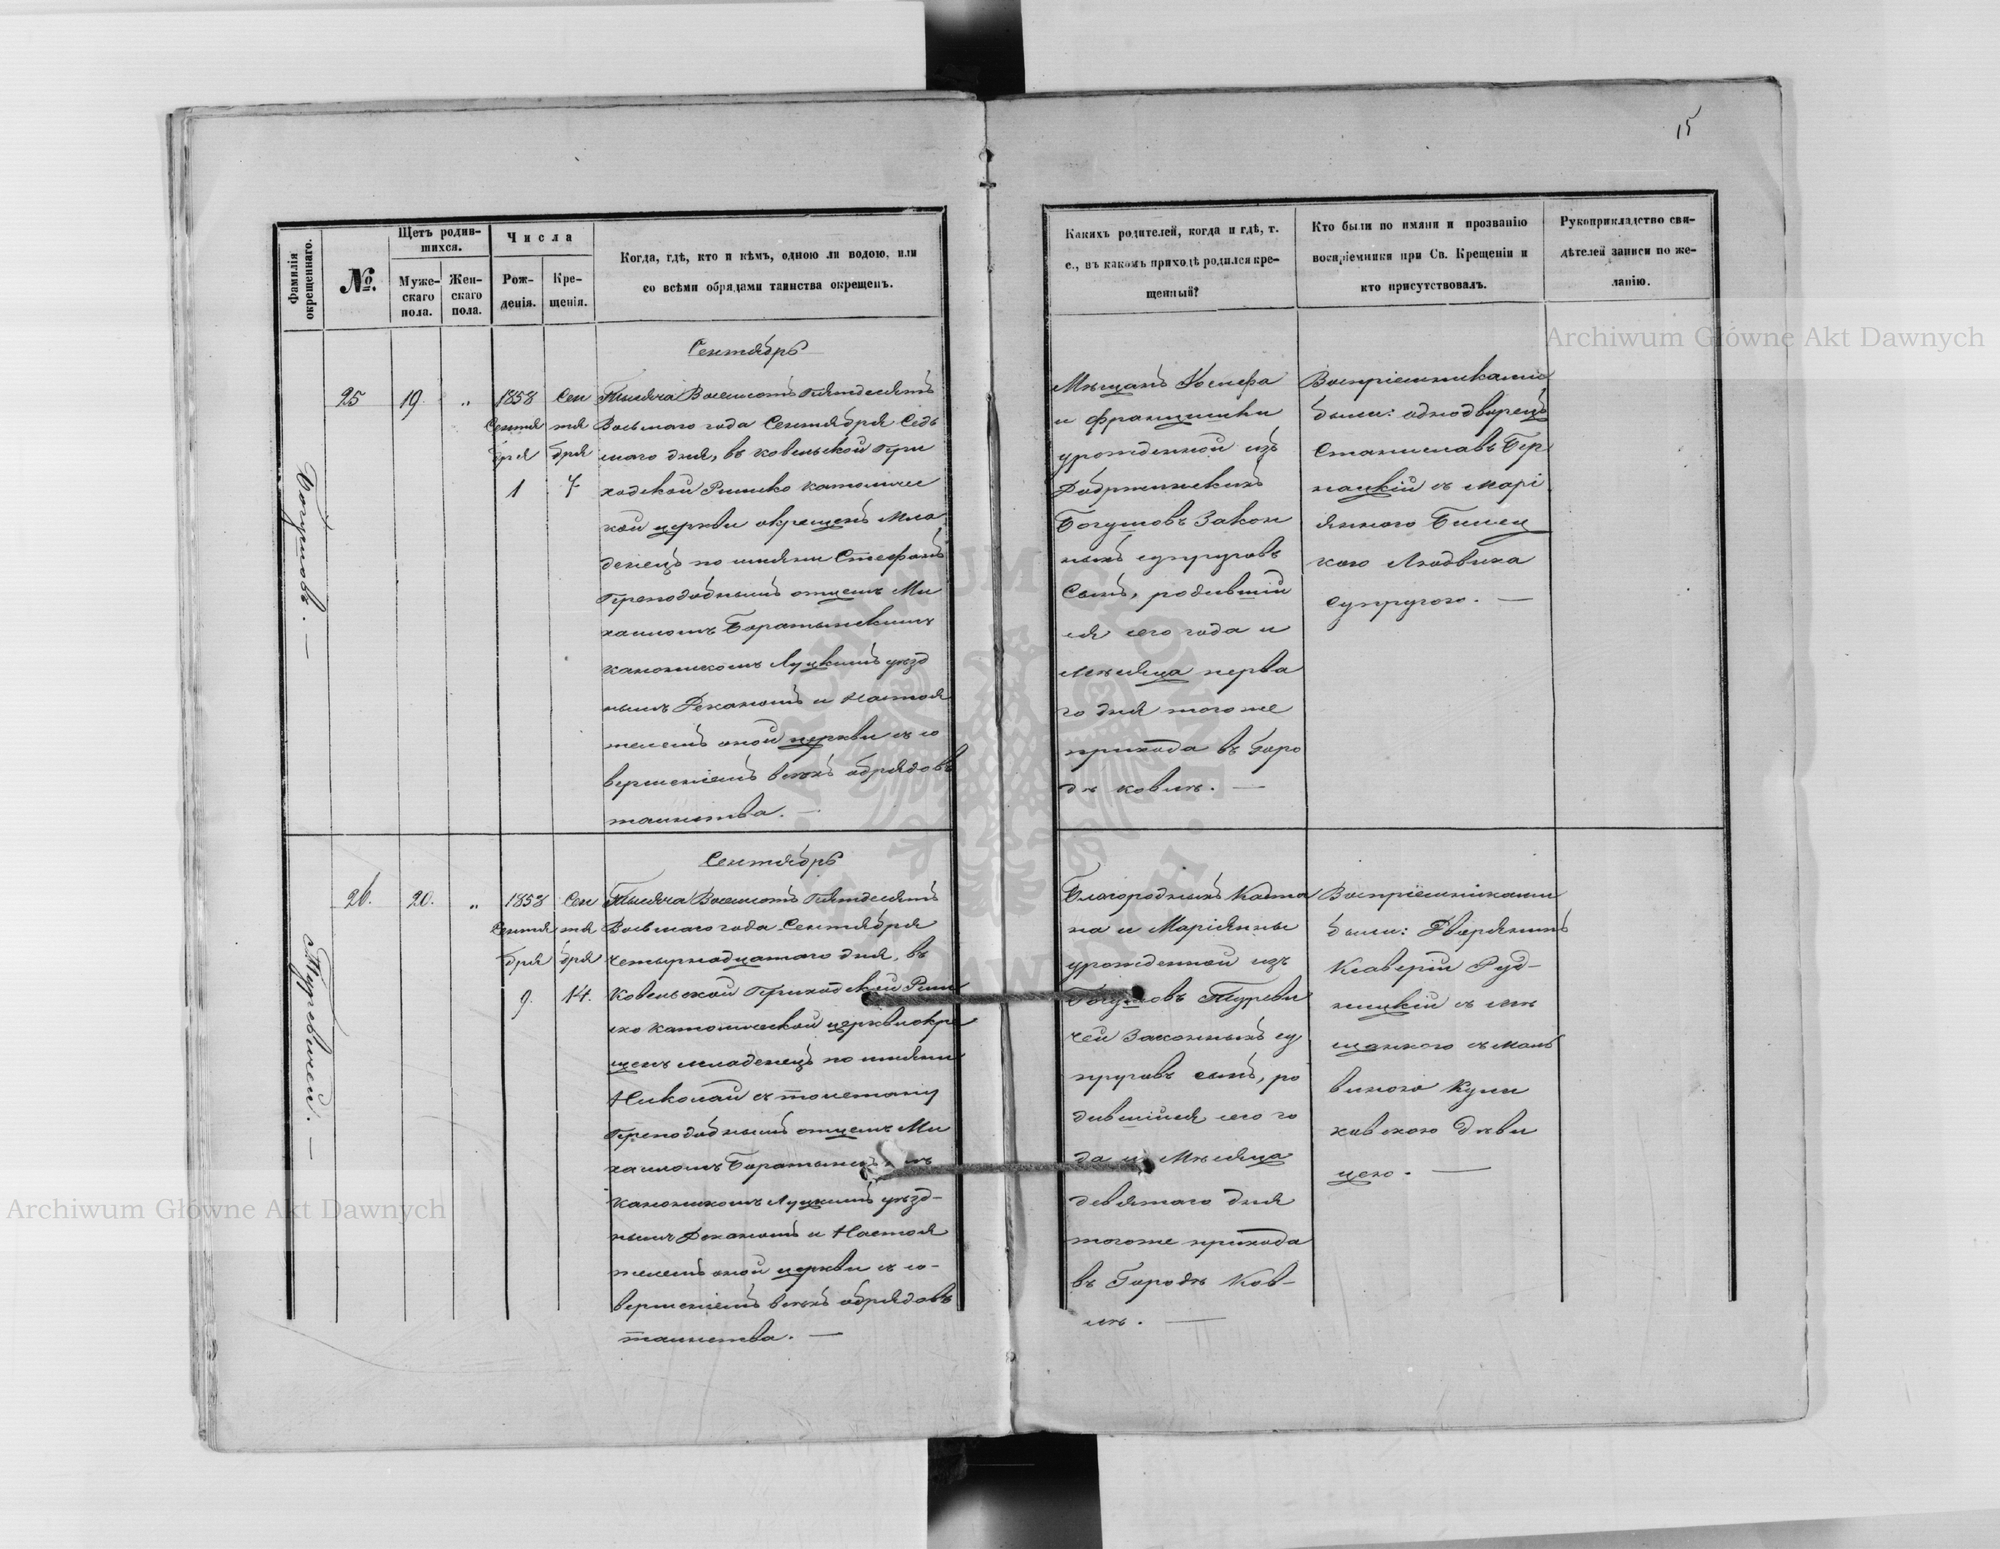 15
Фамилія
окрещеннаго.
№.
Щетъ родив-
шихся.
Муже-
скаго
пола.
Жен-
скаго
пола.
Числа
Рож-
денія.
Кре-
щенія.
Когда, гдѣ, кто и кѣмъ, одною ли водою, или
со всѣми обрядами таинства окрещенъ.
Какихъ родителей, когда и гдѣ, т.
е., въ какомъ приходѣ родился кре-
щенный?
Кто были по имяни и прозванію
воспріемники при Св. Крещеніи и
кто присутствовалъ.
Рукоприкладство сви-
дѣтелей записи по же-
ланію.
Богушовъ. —
25
19.
"
1858
Сентя
бря
1
Сен
тя
бря
7
Сентябрь
Тысяча Восемсотъ Пятдесятъ
Восьмаго года Сентября Седь
маго дня, въ Ковельской При
ходской Римско Католичес
кой церкви окрещенъ Мла
денецъ по имяни Стефанъ
Преподобнымъ отцемъ Ми
хаиломъ Баратынскимъ
Каноникомъ Луцкимъ уѣзд
нымъ Деканомъ и Настоя
телемъ оной церкви съ со
вершеніемъ всѣхъ обрядовъ
таинства. —
Мѣщанъ Іосифа
и Францишки
урожденной изъ
Добржинскихъ
Богушовъ Закон
ныхъ супруговъ
Сынъ, родившій
ся сего года и
Мѣсяца перва
го дня тогоже
прихода въ Горо
дѣ Ковлѣ. —
Воспріемниками
были: однодворецъ
Станиславъ Бер
нацкій съ Марі
янною Билец
кою Людвика
супругою. —
Туревичей. —
26.
20.
"
1858
Сентя
бря
9.
Сен
тя
бря
14.
Сентябрь
Тысяча Восемсотъ Пятдесятъ
Восьмаго года Сентября
четырнадцатаго дня, въ
Ковельской Приходской Рим
ско Католической церкви окре
щенъ младенецъ по имяни
Николай съ Толентину
Преподобнымъ отцемъ Ми
хаиломъ Баратынскимъ
Каноникомъ Луцкимъ уѣзд-
нымъ Деканомъ и Настоя
телемъ оной церкви съ со-
вершеніемъ всѣхъ обрядовъ
таинства. —
Благородныхъ Каэта
на и Маріянны
урожденной изъ
Богушовъ Туреви
чей Законныхъ су
пруговъ сынъ, ро
дившійся сего го
да и Мѣсяца
девятаго дня
тогоже прихода
въ Городѣ Ков-
лѣ. —
Воспріемниками
были: Дворянинъ
Ксаверій Руд-
ницкій съ мѣ
щанкою съ Маль
виною Кули
ковскою дѣви
цею. —
Archiwum Główne Akt Dawnych
Archiwum Główne Akt Dawnych